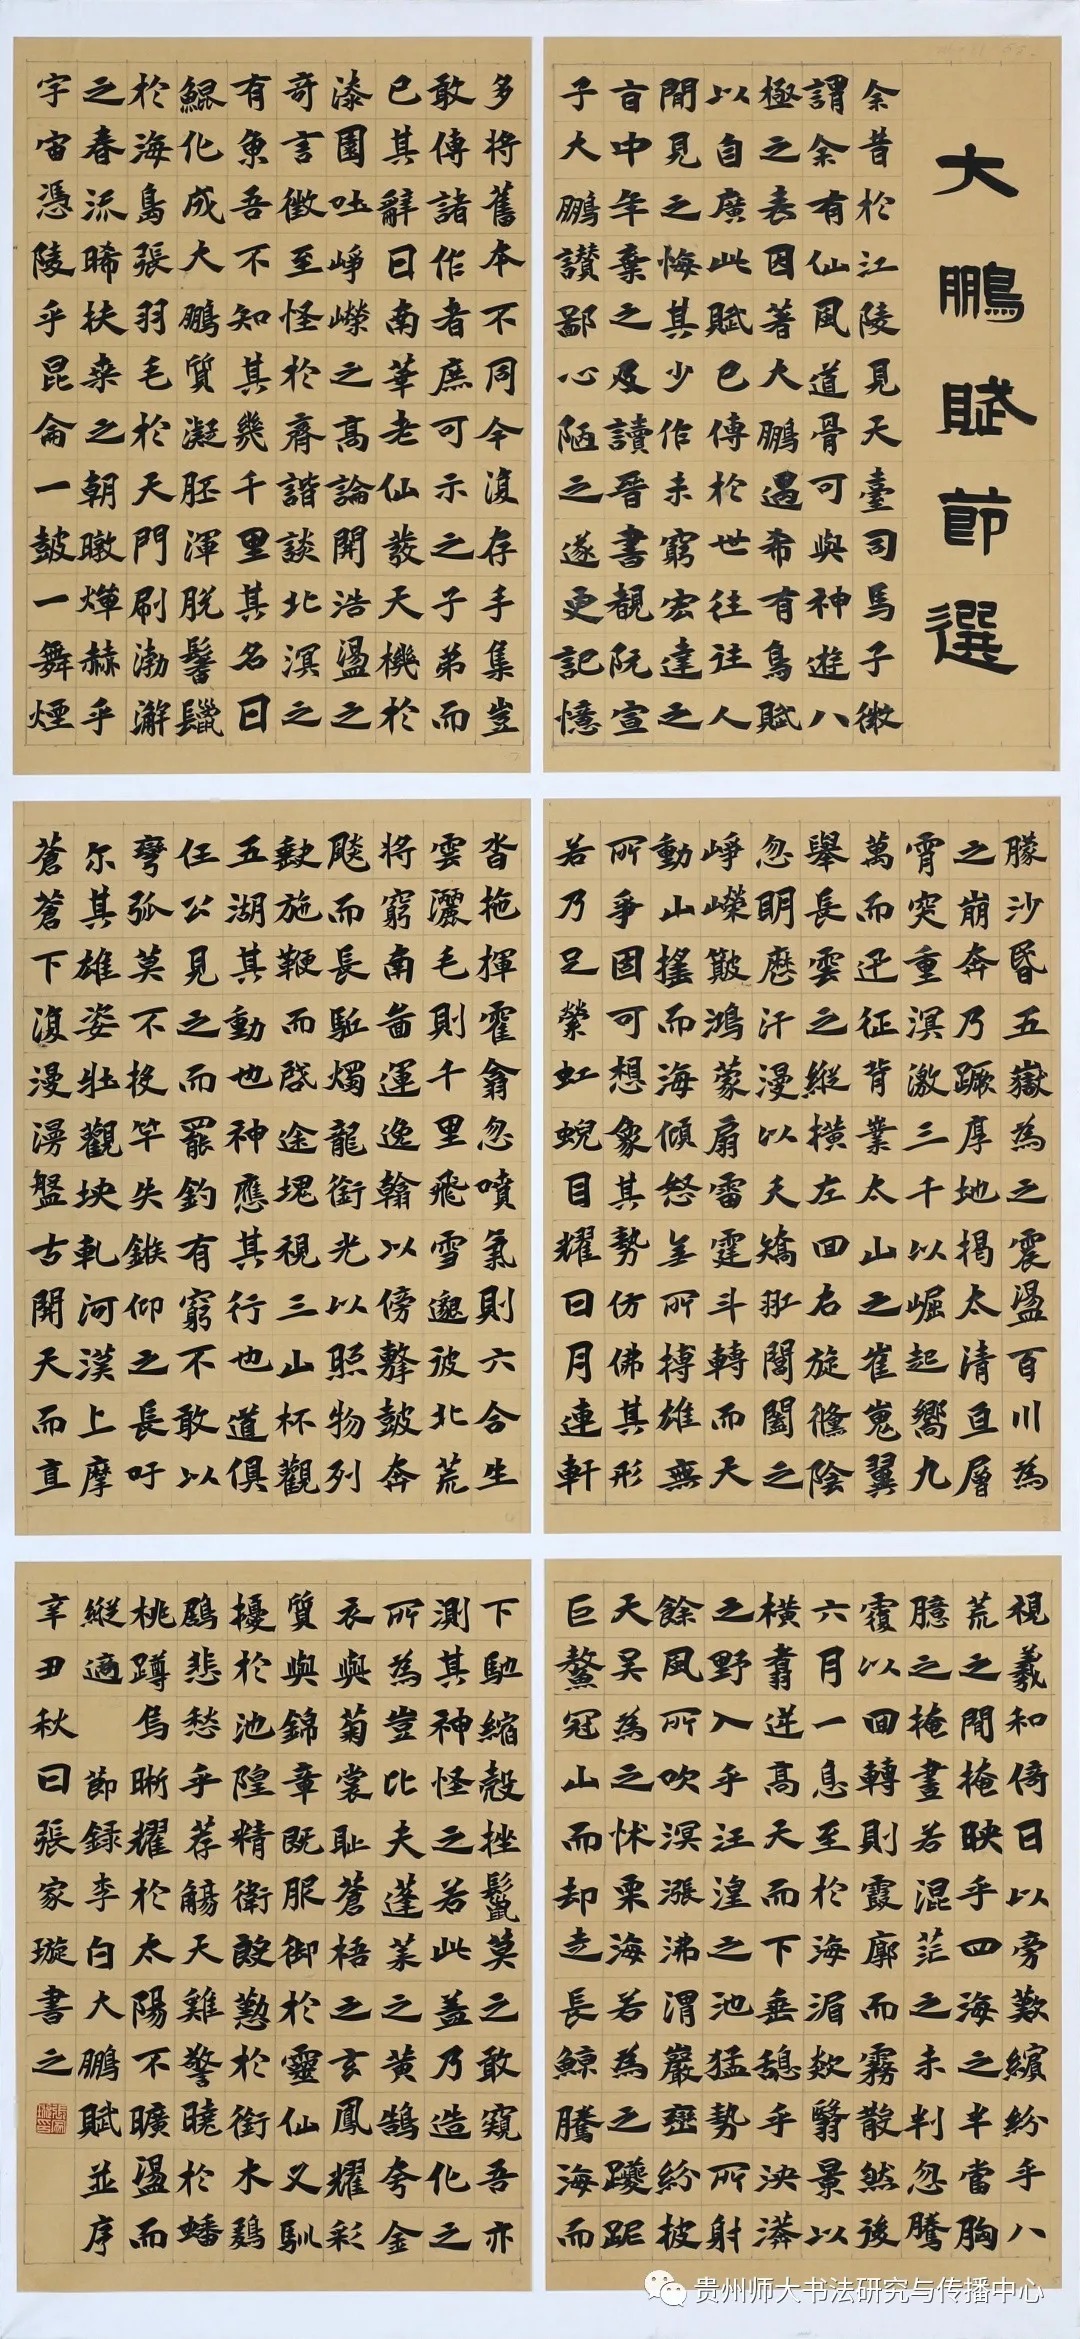 大鵬賦節選
余昔於江陵見天臺司馬子微
謂余有仙風道骨可與神遊八
極之表因著大鵬遇希有鳥賦
以自廣此賦已傳於世往往人
閒見之悔其少作未窮宏達之
旨中年棄之及讀晉書覩阮宣
子大鵬讚鄙心陋之遂更記憶
多將舊本不同今復存手集豈
敢傳諸作者庶可示之子弟而
已其辭曰南華老仙發天機於
漆園吐崢嶸之高論開浩盪之
奇言徵至怪於齊諧談北溟之
有魚吾不知其幾千里其名曰
鯤化成大鵬質凝胚渾脫鬐鬣
於海島張羽毛於天門刷渤澥
之春流晞扶桑之朝暾燀赫乎
宇宙憑陵乎昆侖一鼓一舞煙
朦沙昏五嶽為之震盪百川為
之崩奔乃蹶厚地揭太清亘層
霄突重溟激三千以崛起嚮九
萬而迅征背業太山之崔嵬翼
舉長雲之縱橫左回右旋倏陰
忽明歷汗漫以夭矯羾閶闔之
崢嶸簸鴻蒙扇雷霆斗轉而天
動山搖而海傾怒無所搏雄無
所爭固可想象其勢仿佛其形
若乃足縈虹蜺目耀日月連軒
沓拖揮霍翕忽噴氣則六合生
雲灑毛則千里飛雪邈彼北荒
將窮南圖運逸翰以傍擊鼓奔
飈而長驅燭龍銜光以照物列
缺施鞭而啓途塊視三山杯觀
五湖其動也神應其行也道俱
任公見之而罷釣有窮不敢以
彎弧莫不投竿失鏃仰之長吁
尔其雄姿壯觀坱軋河漢上摩
蒼蒼下復漫漫盤古開天而直
視羲和倚日以旁歎繽紛乎八
荒之間掩映乎四海之半當胸
臆之掩晝若混茫之未判忽騰
覆以回轉則霞廓而霧散然後
六月一息至於海湄欻翳景以
橫翥逆高天而下垂憩乎泱漭
之野入乎汪湟之池猛勢所射
餘風所吹溟漲沸渭巖巒紛披
天吳為之怵栗海若為之躨跜
巨鰲冠山而却走長鯨騰海而
下馳縮殼挫鬣莫之敢窺吾亦
測其神怪之若此蓋乃造化之
所為豈比夫蓬萊之黃鵠夸金
衣與菊裳恥蒼梧之玄鳳耀彩
質與錦章既服御於靈仙又馴
擾於池隍精衛殷勤於銜木鶢
鶋悲愁乎荐觴天雞警曉於蟠
桃蹲烏晰耀於太陽不曠盪而
縱適 節録李白大鵬賦並序
辛丑秋日張家璇書之
贵州师大书法研究与传播中心